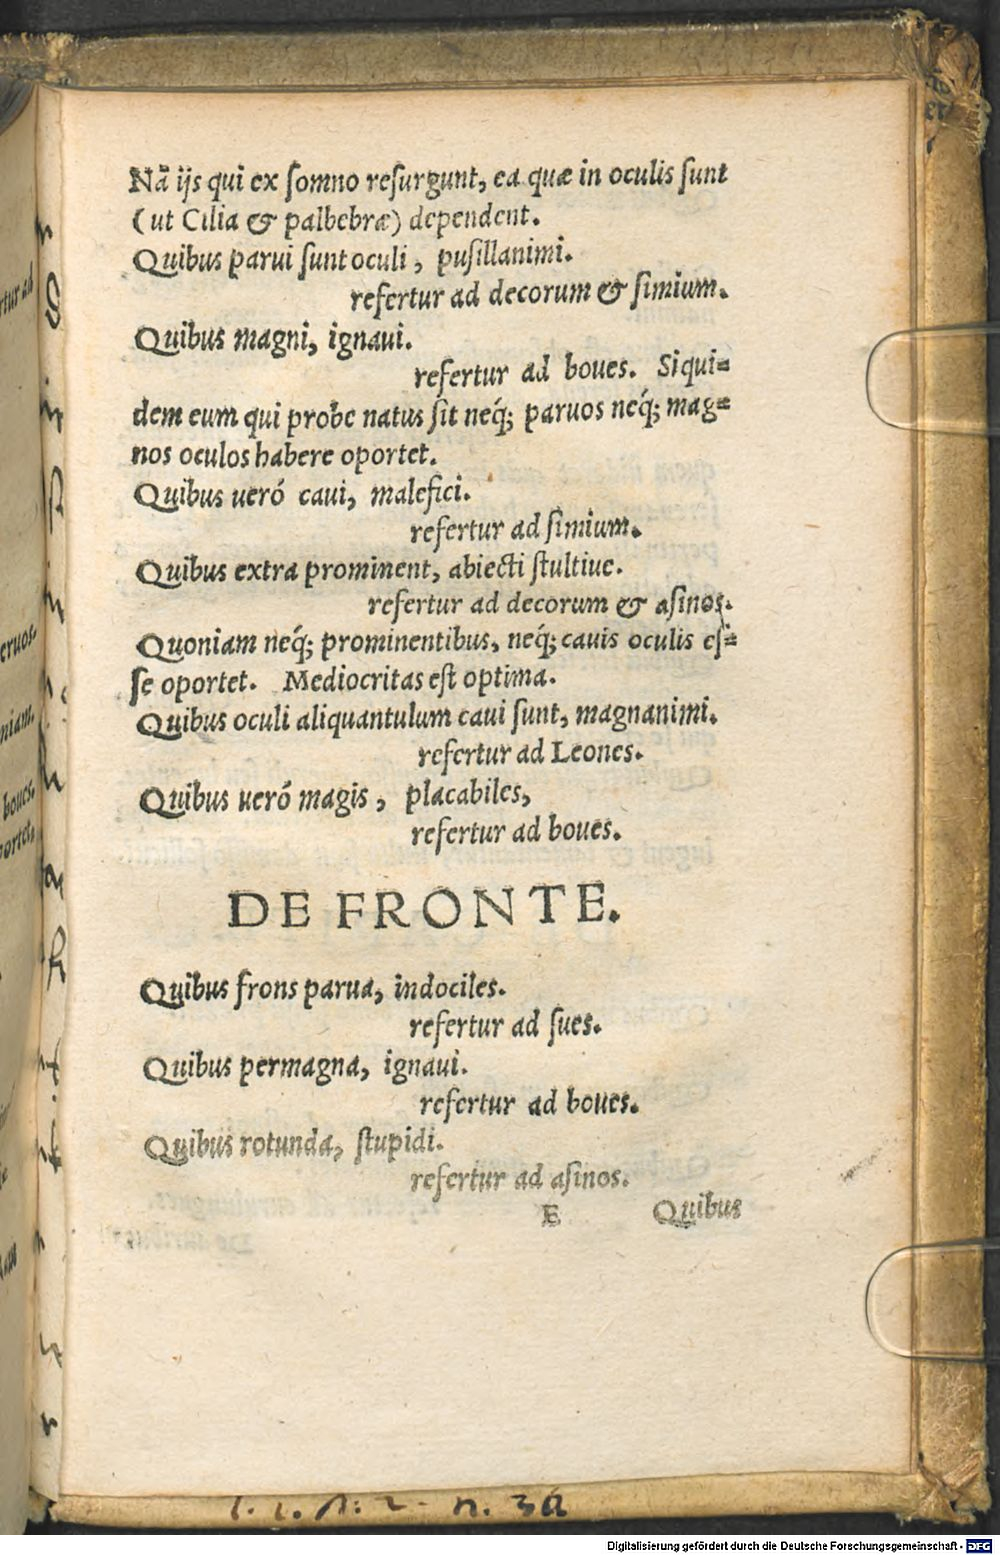 Nã ijs qui ex somno resurgunt, ea quæ in oculis sunt
(ut Cilia & palbebræ) dependent.
Quibus parui sunt oculi, pusillanimi.
refertur ad decorum & simium.
Quibus magni, ignaui.
refertur ad boues. Siqui=
dem eum qui probe natus sit neq́; paruos neq́; mag=
nos oculos habere oportet.
Quibus ueró caui, malefici.
refertur ad simium.
Quibus extra prominent, abiecti stultiue.
refertur ad decorum & asinos.
Quoniam neq́; prominentibus, neq́; cauis oculis es=
se oportet. Mediocritas est optima.
Quibus oculi aliquantulum caui sunt, magnanimi.
refertur ad Leones.
Quibus ueró magis, placabiles,
refertur ad boues.
DE FRONTE.
Quibus frons parua, indociles.
refertur ad sues.
Quibus permagna, ignaui.
refertur ad boues.
Quibus rotunda, stupidi.
refertur ad asinos.
E Quibus
Digitalisierung gefördert durch die Deutsche Forschungsgemeinschaft - DFG